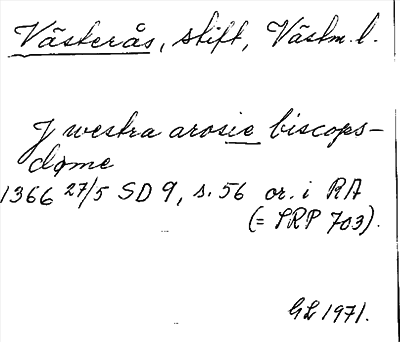 Västerås, stift, Västm. l.
J westra arosie biscops-
døme
1366 27/5 SD 9, s. 56 or. i RA
(= SRP 703).
GL 1971.